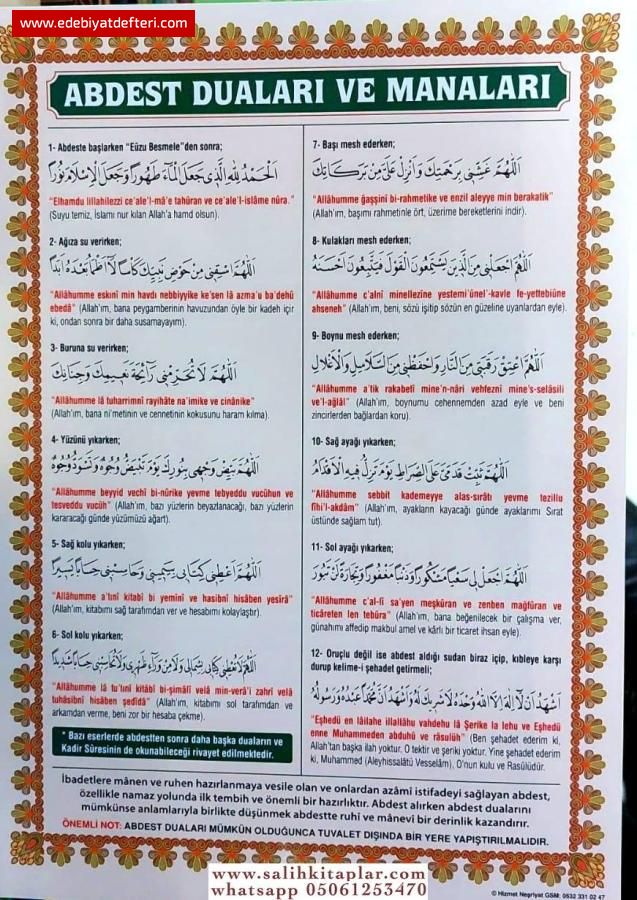 www.edebiyatdefteri.com
ABDEST DUALARI VE MANALARI
1- Abdeste başlarken "Eüzu Besmele"den sonra;
اَلْحَمْدُ لِلّٰهِ الَّذِي جَعَلَ الْمَاۤءَ طَهُورًا وَجَعَلَ الْاِسْلَامَ نُورًا
"Elhamdu lillahilezzi ce'ale'l-mâ'e tahûran ve ce'ale'l-islâme nûra."
(Suyu temiz, İslamı nur kılan Allah'a hamd olsun).
2- Ağıza su verirken;
اَللّٰهُمَّ اسْقِنِي مِنْ حَوْضِ نَبِيِّكَ كَأْسًا لَا اَظْمَأُ بَعْدَهُ اَبَدًا
"Allâhumme eskınî min havdı nebbiyyike ke'sen lâ azma'u ba'dehû
ebedâ" (Allah'ım, bana peygamberinin havuzundan öyle bir kadeh içir
ki, ondan sonra bir daha susamayayım).
3- Buruna su verirken;
اَللّٰهُمَّ لَا تُحَرِّمْنِي رَائِحَةَ نَعِيمِكَ وَجِنَانِكَ
"Allâhumme lâ tuharrimnî rayihâte na'imike ve cinânike"
(Allah'ım, bana ni'metinin ve cennetinin kokusunu haram kılma).
4- Yüzünü yıkarken;
اَللّٰهُمَّ بَيِّضْ وَجْهِي بِنُورِكَ يَوْمَ تَبْيَضُّ وُجُوهٌ وَتَسْوَدُّ وُجُوهٌ
"Allâhumme beyyid vechî bi-nûrike yevme tebyeddu vucûhun ve
tesveddu vucûh" (Allah'ım, bazı yüzlerin beyazlanacağı, bazı yüzlerin
kararacağı günde yüzümüzü ağart).
5- Sağ kolu yıkarken;
اَللّٰهُمَّ اَعْطِنِي كِتَابِي بِيَمِينِي وَحَاسِبْنِي حِسَابًا يَسِيرًا
"Allâhumme a'tınî kitabî bi yeminî ve hasibnî hisâben yesîrâ"
(Allah'ım, kitabımı sağ tarafımdan ver ve hesabımı kolaylaştır).
6- Sol kolu yıkarken;
اَللّٰهُمَّ لَا تُعْطِنِي كِتَابِي بِشِمَالِي وَلَا مِنْ وَرَاءِ ظَهْرِي وَلَا تُحَاسِبْنِي حِسَابًا شَدِيدًا
"Allâhumme lâ tu'tınî kitâbî bi-şimâlî velâ min-verâ'i zahrî velâ
tuhâsibnî hisâben şedîdâ" (Allah'ım, kitabımı sol tarafımdan ve
arkamdan verme, beni zor bir hesaba çekme).
* Bazı eserlerde abdestten sonra daha başka duaların ve
Kadir Sûresinin de okunabileceği rivayet edilmektedir.
7- Başı mesh ederken;
اَللّٰهُمَّ غَشِّنِي بِرَحْمَتِكَ وَاَنْزِلْ عَلَيَّ مِنْ بَرَكَاتِكَ
"Allâhumme ğaşşinî bi-rahmetike ve enzil aleyye min berakatik"
(Allah'ım, başımı rahmetinle ört, üzerime bereketlerini indir).
8- Kulakları mesh ederken;
اَللّٰهُمَّ اجْعَلْنِي مِنَ الَّذِينَ يَسْتَمِعُونَ الْقَوْلَ فَيَتَّبِعُونَ اَحْسَنَهُ
"Allâhumme c'alnî minellezîne yestemi'ûnel'-kavle fe-yettebiûne
ahseneh" (Allah'ım, beni, sözü işitip sözün en güzeline uyanlardan eyle).
9- Boynu mesh ederken;
اَللّٰهُمَّ اعْتِقْ رَقَبَتِي مِنَ النَّارِ وَاحْفَظْنِي مِنَ السَّلَاسِلِ وَالْاَغْلَالِ
"Allâhumme a'tik rakabetî mine'n-nâri vehfeznî mine's-selâsili
ve'l-ağlâl" (Allah'ım, boynumu cehennemden azad eyle ve beni
zincirlerden bağlardan koru).
10- Sağ ayağı yıkarken;
اَللّٰهُمَّ ثَبِّتْ قَدَمَيَّ عَلَى الصِّرَاطِ يَوْمَ تَزِلُّ فِيهِ الْاَقْدَامُ
"Allâhumme sebbit kademeyye alas-sırâtı yevme tezillu
fîhi'l-akdâm" (Allah'ım, ayakların kayacağı günde ayaklarımı Sırat
üstünde sağlam tut).
11- Sol ayağı yıkarken;
اَللّٰهُمَّ اجْعَلْ لِي سَعْيًا مَشْكُورًا وَذَنْبًا مَغْفُورًا وَتِجَارَةً لَنْ تَبُورَ
"Allâhumme c'al-lî sa'yen meşkûran ve zenben mağfûran ve
ticâreten len tebûra" (Allah'ım, bana beğenilecek bir çalışma ver,
günahımı affedip makbul amel ve kârlı bir ticaret ihsan eyle).
12- Oruçlu değil ise abdest aldığı sudan biraz içip, kıbleye karşı
durup kelime-i şehadet getirmeli;
اَشْهَدُ اَنْ لَا اِلٰهَ اِلَّا اللّٰهُ وَحْدَهُ لَا شَرِيكَ لَهُ وَاَشْهَدُ اَنَّ مُحَمَّدًا عَبْدُهُ وَرَسُولُهُ
"Eşhedü en lâilahe illallâhu vahdehu lâ Şerike la lehu ve Eşhedü
enne Muhammeden abduhû ve râsulüh" (Ben şehadet ederim ki,
Allah'tan başka ilah yoktur. O tektir ve şeriki yoktur. Yine şehadet ederim
ki, Muhammed (Aleyhissalâtü Vesselâm), O'nun kulu ve Rasûlüdür.
İbadetlere mânen ve ruhen hazırlanmaya vesile olan ve onlardan azâmî istifadeyi sağlayan abdest,
özellikle namaz yolunda ilk tembih ve önemli bir hazırlıktır. Abdest alırken abdest dualarını
mümkünse anlamlarıyla birlikte düşünmek abdestte ruhî ve mânevî bir derinlik kazandırır.
ÖNEMLİ NOT: ABDEST DUALARI MÜMKÜN OLDUĞUNCA TUVALET DIŞINDA BİR YERE YAPIŞTIRILMALIDIR.
www.salihkitaplar.com
whatsapp 05061253470
© Hizmet Neşriyat GSM: 0532 331 02 47